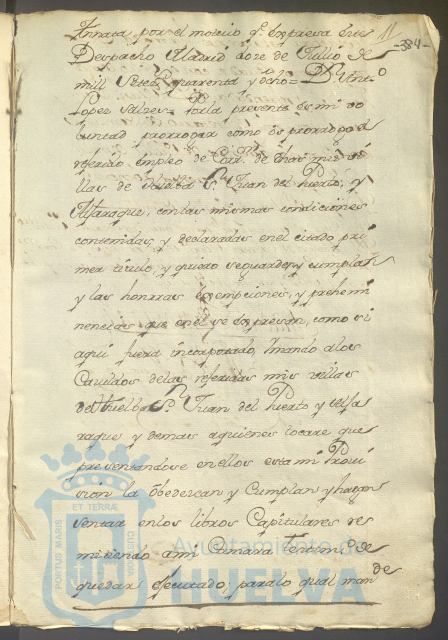 11
-384-
Annata por el motivo q.e expresa este
Despacho Madrid doze de Jullio de
mill Setez.s quarenta y ocho = D.n Ant.o
Lopez Salzes = Por la presente es mi vo
luntad prorrogar como os prorrogo el
referido empleo de Corr.or de dhas mis vi
llas de Huelba S.n Juan del Puerto, y
Alfaraque, con las mismas condiciones
contenidas y declaradas en el citado pri
mer titulo, y quiero se guarden y cumplan
y las honrras exempciones, y prehemi
nencias que en el se expresan, como si
aqui fuera incorporado, Mando a los
Cavildos de las referidas mis villas
de Huelba S.n Juan del Puerto y Alfa
raque y demas a quienes tocare que
presentandose en ellos esta mi Provi
sion la obedezcan y cumplan y hagan
sentar en los libros Capitulares re
mitiendo a mi Camara testim.o de
quedar efecutado, para lo qual man
de
PORTUS MARIS
ET TERRÆ
CUSTODIA
Ayuntamiento de
HUELVA